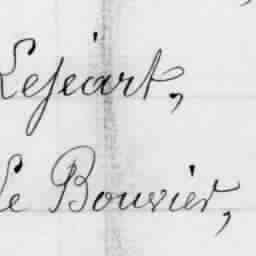 Lejéart,
Le Bouvier,